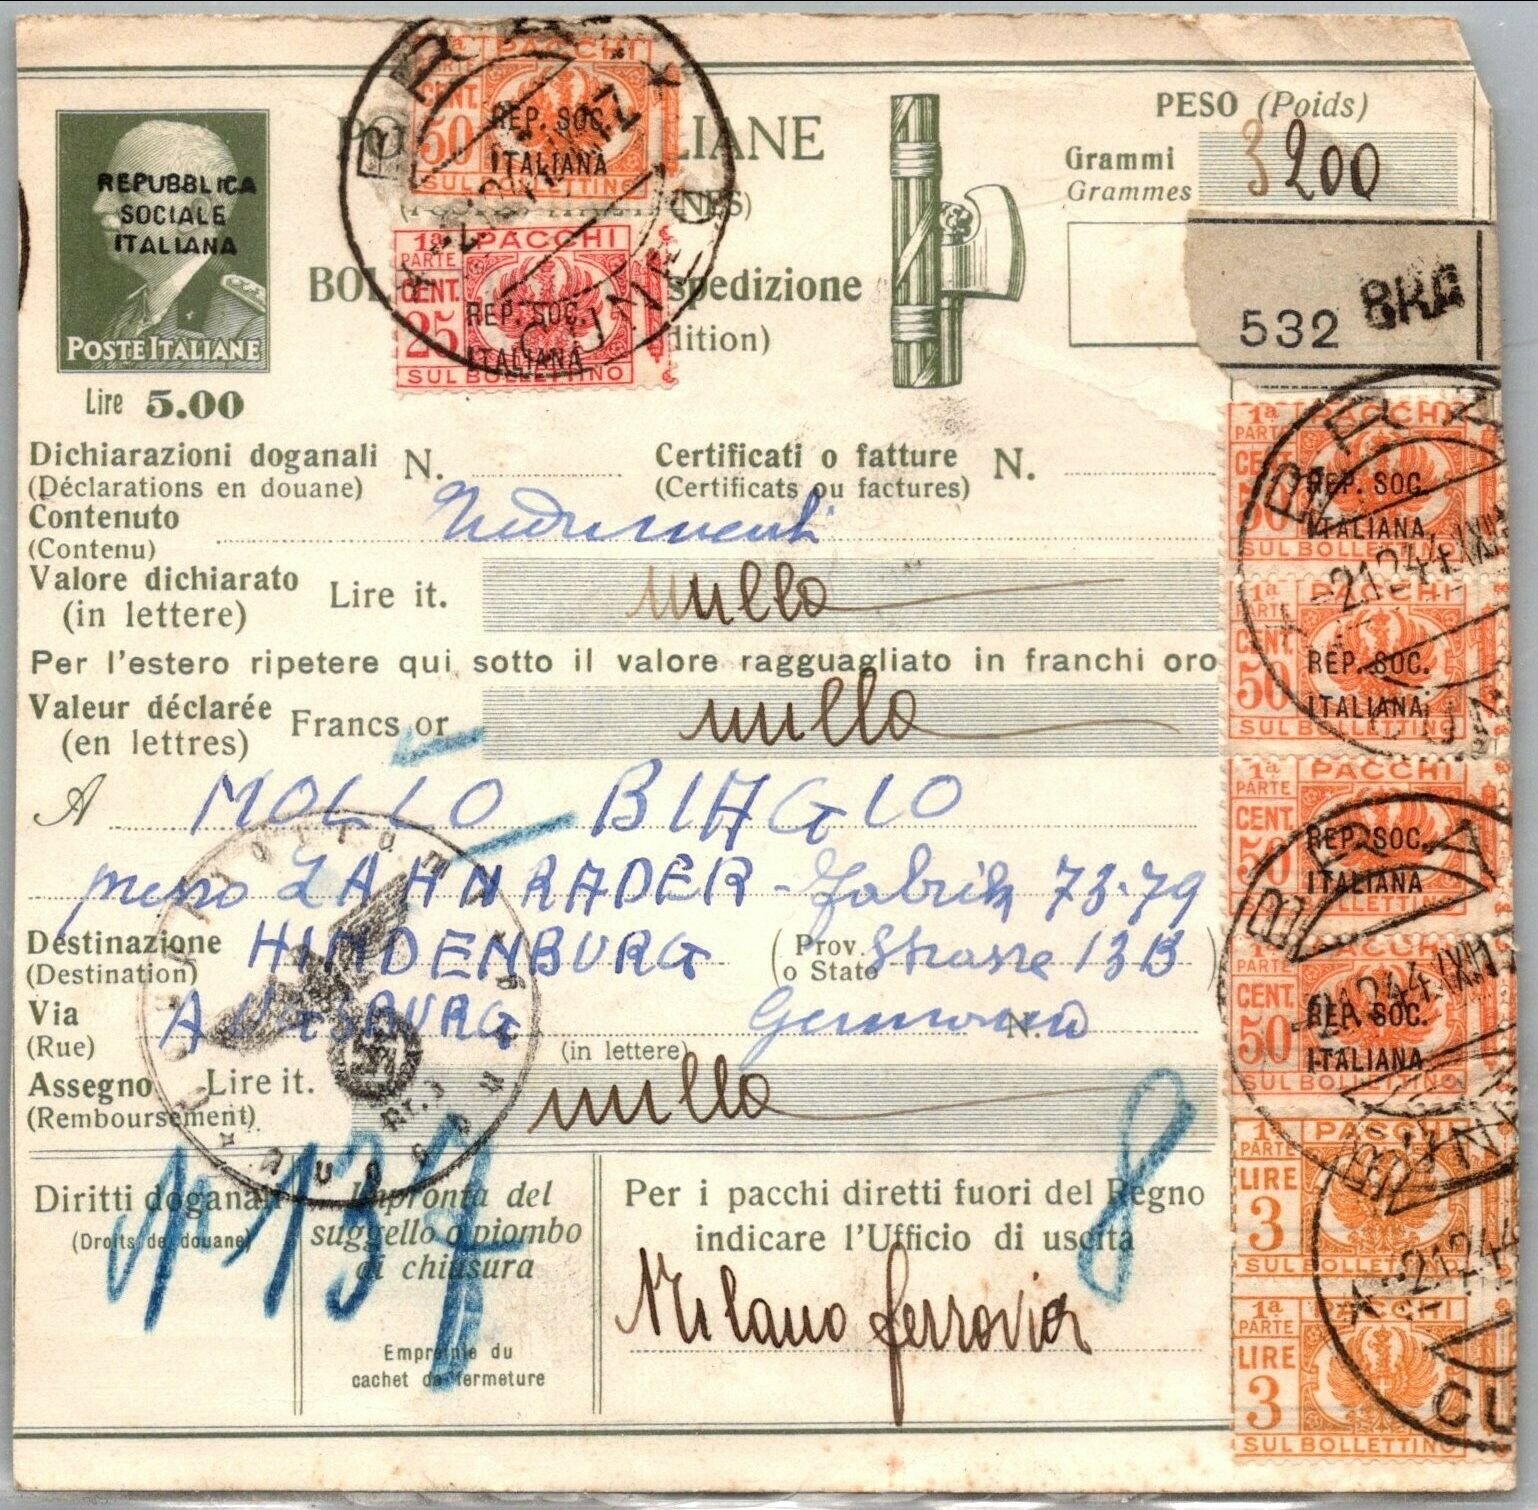 REPUBBLICA
SOCIALE
ITALIANA
POSTE ITALIANE
Lire 5.00
1ª PACCHI
PARTE
CENT.
50
REP. SOC.
ITALIANA
SUL BOLLETTINO
1ª PACCHI
PARTE
CENT.
25
REP. SOC.
ITALIANA
SUL BOLLETTINO
BRA
CUNEO
LIANE
BOL spedizione
dition)
PESO (Poids)
Grammi
Grammes
3200
532 BRA
Dichiarazioni doganali N.
(Déclarations en douane)
Certificati o fatture N.
(Certificats ou factures)
Contenuto
(Contenu)
Valore dichiarato Lire it. nullo
(in lettere)
Per l'estero ripetere qui sotto il valore ragguagliato in franchi oro
Valeur déclarée Francs or nullo
(en lettres)
A MOLLO BIAGIO
presso ZAHNRADER - Fabrik 73-79
Destinazione HINDENBURG (Prov. Strasse 13B)
(Destination) o Stato
Via AUGSBURG Germania N.
(Rue)
(in lettere)
Assegno Lire it. nullo
(Remboursement)
Augsburg
Nr. 3
Diritti doganali
(Droits de douane)
137
Impronta del
suggello o piombo
di chiusura
Empreinte du
cachet de fermeture
Per i pacchi diretti fuori del Regno
indicare l'Ufficio di uscita
8
Milano ferrovia
1ª PACCHI
PARTE
CENT.
50
REP. SOC.
ITALIANA
SUL BOLLETTINO
1ª PACCHI
PARTE
CENT.
50
REP. SOC.
ITALIANA
SUL BOLLETTINO
1ª PACCHI
PARTE
CENT.
50
REP. SOC.
ITALIANA
SUL BOLLETTINO
1ª PACCHI
PARTE
CENT.
50
REP. SOC.
ITALIANA
SUL BOLLETTINO
1ª PACCHI
PARTE
LIRE
3
SUL BOLLETTINO
1ª PACCHI
PARTE
LIRE
3
SUL BOLLETTINO
BRA
21.2.44.XXII
BRA
21.2.44.XXII
21.2.44
CU